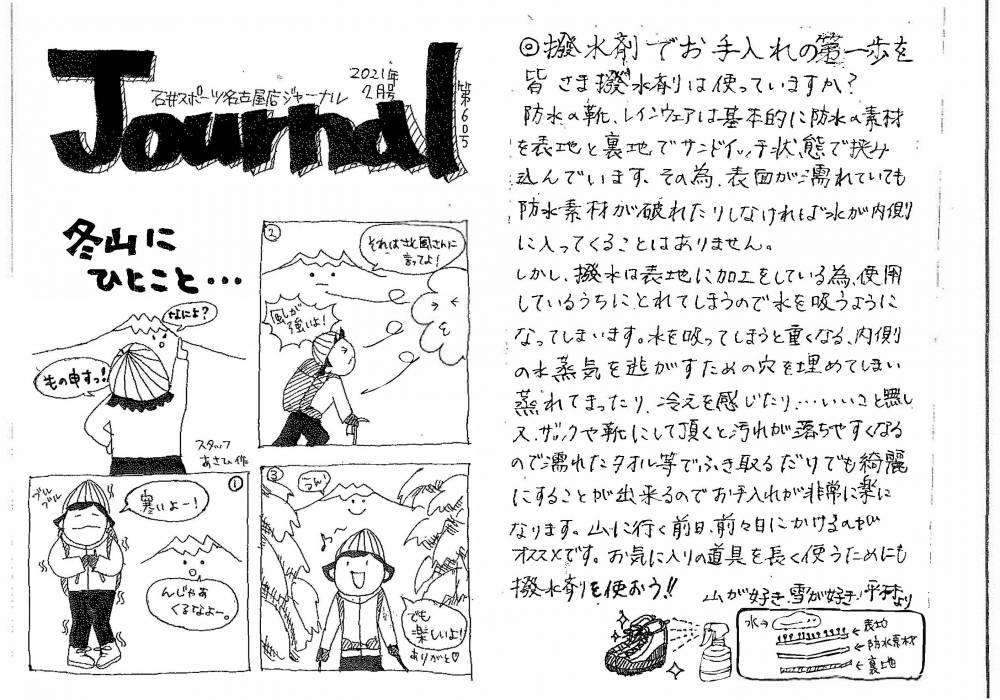 Journal
2021年
2月号
第605
石井スポーツ名古屋店ジャーナル
冬山に
ひとこと…
なによ?
もの申すっ!
スタッフ
あさひ作
①
ブル
ブル
寒いよー!
んじゃあ
くるなよー。
②
それは北風さんに
言ってよ!
風が
強いよ!
③
うん
♪
でも
楽しいよ!
ありがと♡
◎撥水剤でお手入れの第一歩を
皆さま撥水剤は使っていますか?
防水の靴、レインウェアは基本的に防水の素材
を表地と裏地でサンドイッチ状態で挟み
込んでいます、その為、表面が濡れていても
防水素材が破れたりしなければ水が内側
に入ってくることはありません。
しかし、撥水は表地に加工をしている為、使用
しているうちにとれてしまうので水を吸うように
なってしまいます。水を吸ってしまうと重くなる、内側
の水蒸気を逃がすための穴を埋めてしまい
蒸れてまったり、冷えを感じたり…いいこと無し
又、ザックや靴にして頂くと汚れが落ちやすくなる
ので濡れたタオル等でふき取るだけでも綺麗
にすることが出来るのでお手入れが非常に楽に
なります。山に行く前日、前々日にかけるのが
オススメです。お気に入りの道具を長く使うためにも
撥水剤を使おう!!
山が好き、雪が好き!より
水→
←表地
←防水素材
←裏地